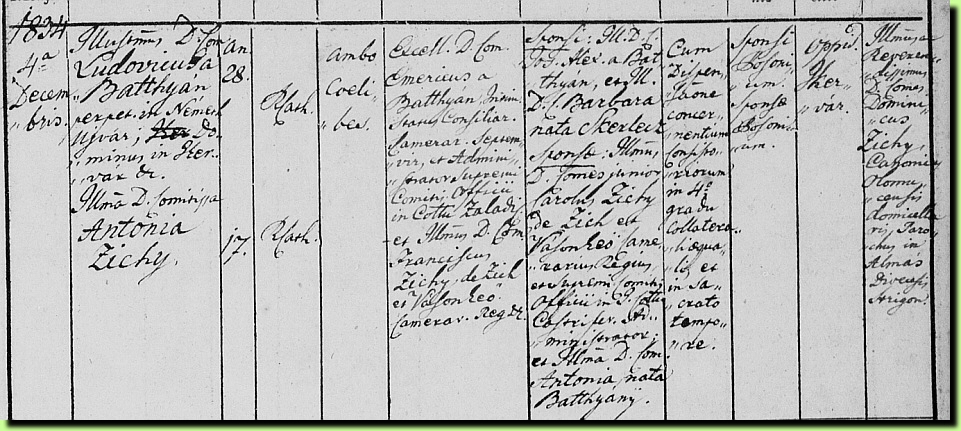 1834
4ᵃ
Decem„
„bris.
Illustrmus D. Com
Ludovicus a
Batthyán
perpet. in Németh
Ujvár, Do„
„minus in Ker„
„vár &.
Illma D. Comitissa
Antonia
Zichy.
an
28.
17.
Rkath.
Rkath.
ambo
Coeli„
„bes.
Excell. D. Com.
Emericus a
Batthyán, Intim.
Status Consiliar.
Camerar. Septem„
„vir, et Admini„
„strator Supremi
Comitis Officii
in Cottu Zaladi.
et Illmus D. Com
Franciscus
Zichy, de Zich
et Vásonkeö
Camerar. Reg. &.
Sponsi: Ill. D. C.
Jos. Alex. a Bat
thyán, et Ill.
D. C. Barbara
nata Skerlecz
Sponsae: Illmus
D. Comes junior
Carolus Zichy
de Zich et
Vásonkeö Came„
„rarius Regius,
et Supremi Comitis
Officii in Cottu
Castrifer. Ad„
„ministrator;
et Illma D. Com
Antonia nata
Batthyány.
Cum
Dispen„
„sa„one
concer„
„nentium
Consisto„
„riorum
in 4º
gradu
Collatera„
„li aequa„
„lis, et
in Sa„
„crato
tempo„
„re.
Sponsi
Posoni„
„um.
Sponsae
Posoni„
„um.
Oppid.
Ker„
var.
Illmus ac
Reveren„
„dissimus
D. Comes
Domini„
„cus
Zichy
Canonicus
Olomu„
„censis
domicella„
ris, Paro„
„chus in
Almás
Dioecesis
Strigon.